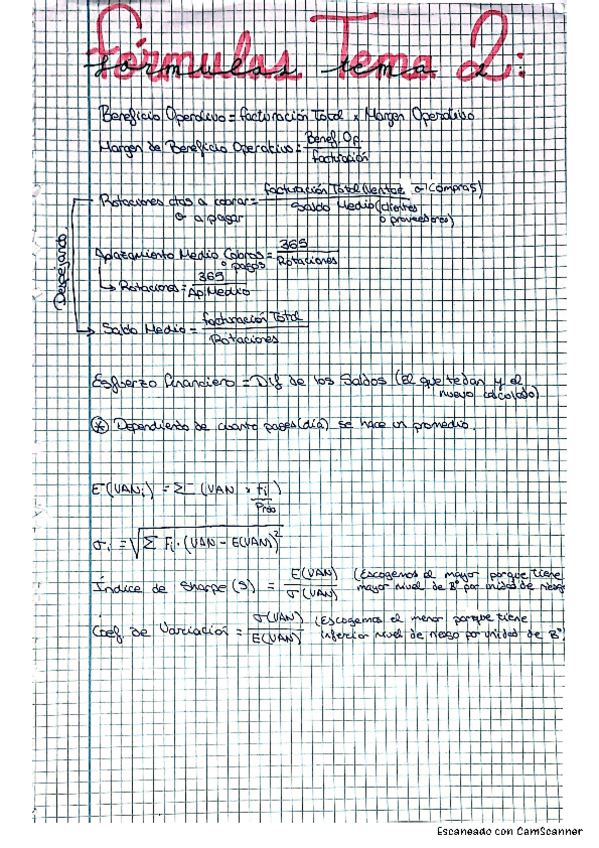 Fórmulas Tema 2:
Beneficio Operativo = facturación Total x Margen Operativo
Margen de Beneficio Operativo = Benef. Op / facturación
Rotaciones ctas a cobrar o a pagar = facturación Total (Ventas o Compras) / Saldo Medio (clientes o proveedores)
Despejando
Aplazamiento Medio Cobros o pagos = 365 / Rotaciones
↳ Rotaciones = 365 / Ap. Medio
→ Saldo Medio = facturación Total / Rotaciones
Esfuerzo financiero = Dif de los Saldos (el que te dan y el
nuevo calculado)
* Dependiendo de cuanto pages (día) se hace un promedio.
E(VANi) = Σ (VAN x fi)
Prob
σi = √Σ Fi · (VAN - E(VAN))²
Índice de Sharpe (S) = E(VAN) / σ(VAN) (Escogemos el mayor porque tiene
mayor nivel de Bº por unidad de riesgo
Coef. de Variación = σ(VAN) / E(VAN) (Escogemos el menor porque tiene
inferior nivel de riesgo por unidad de Bº)
Escaneado con CamScanner